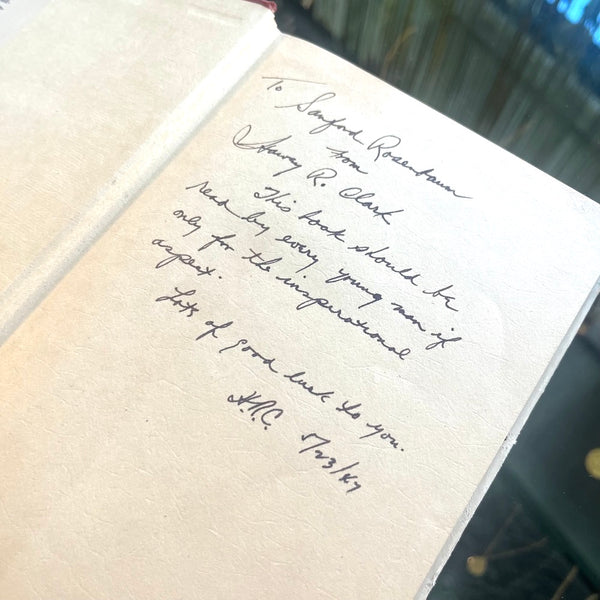 To Sanford Rosenbaum
from
Harvey R. Clark
This book should be
read by every young man if
only for the inspirational
aspect.
Lots of good luck to you.
H.R.C. 5/23/47